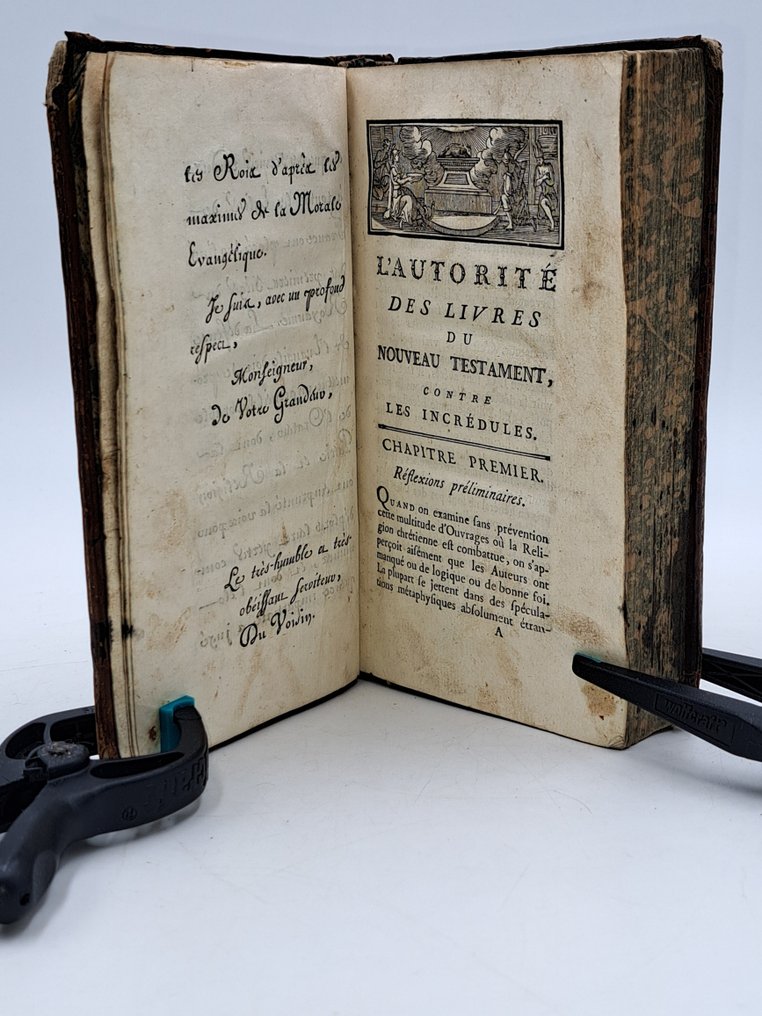 les Rois d'après les
maximes de la Morale
Evangélique.
Je suis, avec un profond
respect,
Monseigneur,
de Votre Grandeur,
Le très-humble & très-
obéissant serviteur,
Du Voisin.
L'AUTORITÉ
DES LIVRES
DU
NOUVEAU TESTAMENT,
CONTRE
LES INCRÉDULES.
CHAPITRE PREMIER.
Réflexions préliminaires.
QUAND on examine sans prévention
cette multitude d'Ouvrages où la Reli-
gion chrétienne est combattue, on s'ap-
perçoit aisément que les Auteurs ont
manqué ou de logique ou de bonne foi.
La plupart se jettent dans des spécula-
tions métaphysiques absolument étran-
A
wolfcraft